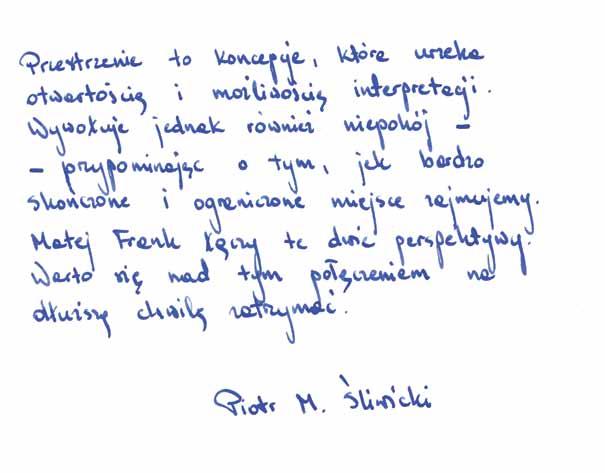 Przestrzenie to koncepcje, które urzeka
otwartością i możliwością interpretacji.
Wywołuje jednak również niepokój –
– przypominając o tym, jak bardzo
skończone i ograniczone miejsce zajmujemy.
Matej Frank łączy te dwie perspektywy.
Warto się nad tym połączeniem na
dłuższą chwilę zatrzymać.
Piotr M. Śliwicki